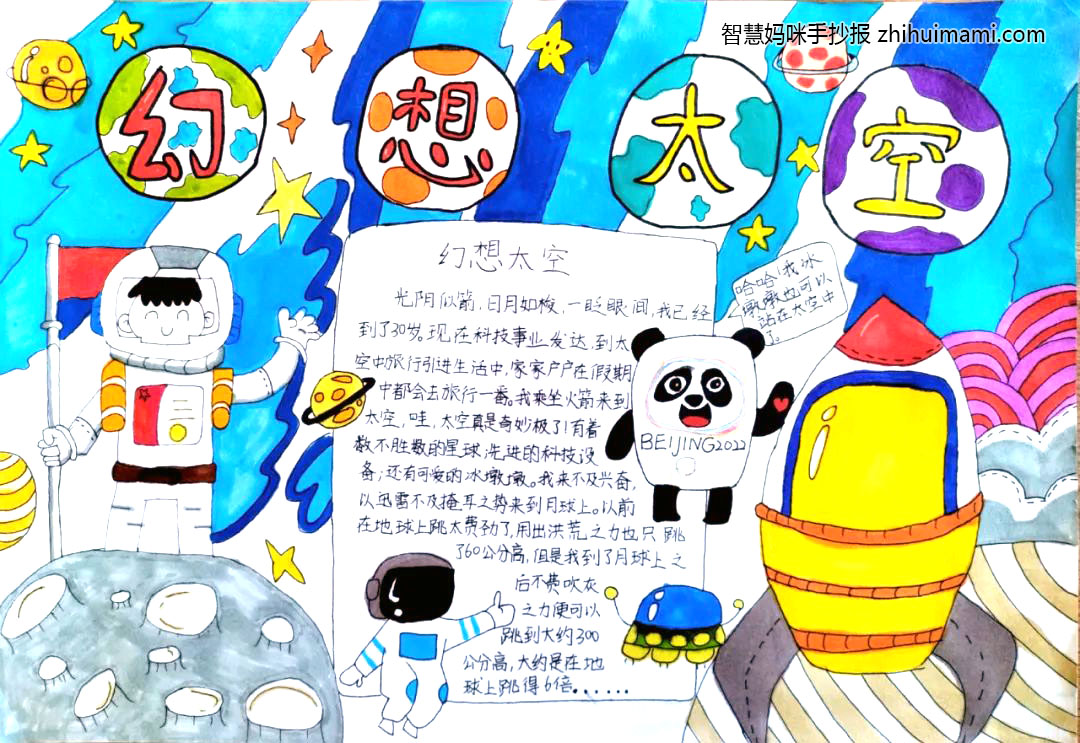 智慧妈咪手抄报 zhihuimami.com
幻想太空
幻想太空
光阴似箭，日月如梭，一眨眼间，我已经
到了30岁。现在科技事业发达，到太
空中旅行引进生活中，家家户户在假期
中都会去旅行一番。我乘坐火箭来到
太空，哇，太空真是奇妙极了！有着
数不胜数的星球，先进的科技设
备；还有可爱的冰墩墩。我来不及兴奋，
以迅雷不及掩耳之势来到月球上。以前
在地球上跳太费劲了，用出洪荒之力也只跳
了60公分高，但是我到了月球上之
后不费吹灰
之力便可以
跳到大约300
公分高，大约是在地
球上跳得6倍......
哈哈！我冰
墩墩也可以
站在太空中
了。
BEIJING2022